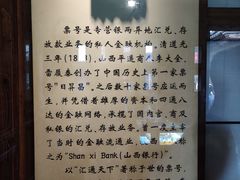 票号是专营银两异地汇兑、存
放款业务的私人金融机构。清道光
三年(1823),山西平遥有人李大全、
雷履泰创办了中国历史上第一家票
号"日昇昌"。之后数十家票号应运而
生,并凭借着雄厚的资本和四通八
达的金融网络,承揽了国内官、商及
私银的汇兑、存放款。曾一度主宰
了当时的金融流通业,
之为"Shan xi Bank(山西银行)"。
以"汇通天下"著称于世的票号,